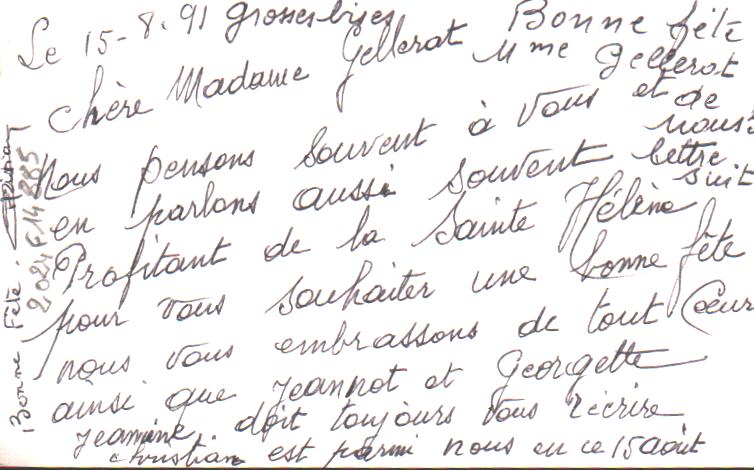 Le 15-8.91 grosses bises Bonne fête
Mme Gellerat
chère Madame Gellerat
nous pensons souvent à vous et de nous
en parlons aussi souvent lettre suit
Profitant de la Sainte Hélène
pour vous souhaiter une bonne fête
nous vous embrassons de tout Coeur
ainsi que Jeannot et Georgette
Jeannine doit toujours vous réécrire
christian est parmi nous en ce 15 août
Bonne Fête. Christian
2024 F14 285